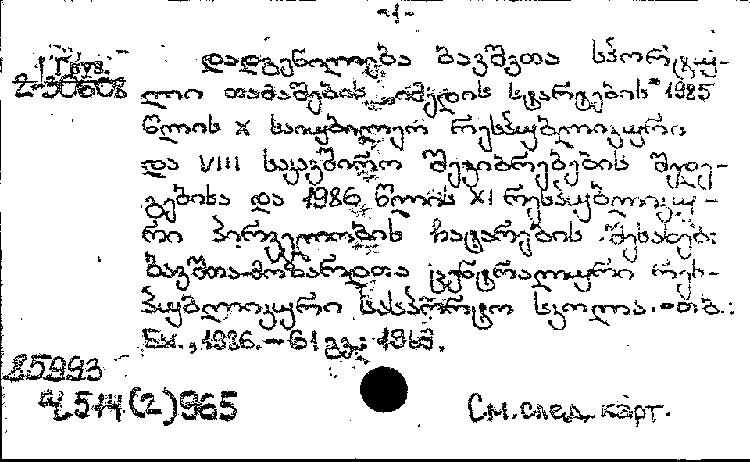 -1-
1 Груз.
2-30608
დადგენილება ბავშვთა სპორტუ-
ლი თამაშების „იმედის სტარტების" 1985
წლის X საიუბილეო რესპუბლიკური
და VIII საკავშირო შეჯიბრებების შედე-
გებისა და 1986 წლის XI რესპუბლიკუ-
რი პირველობის ჩატარების შესახებ:
ბავშვთა-მოზარდთა ცენტრალური რეს-
პუბლიკური სასპორტო სკოლა. - თბ.:
წ., 1986. - 61 გვ.
85993
4514(2)965
См. след. карт.